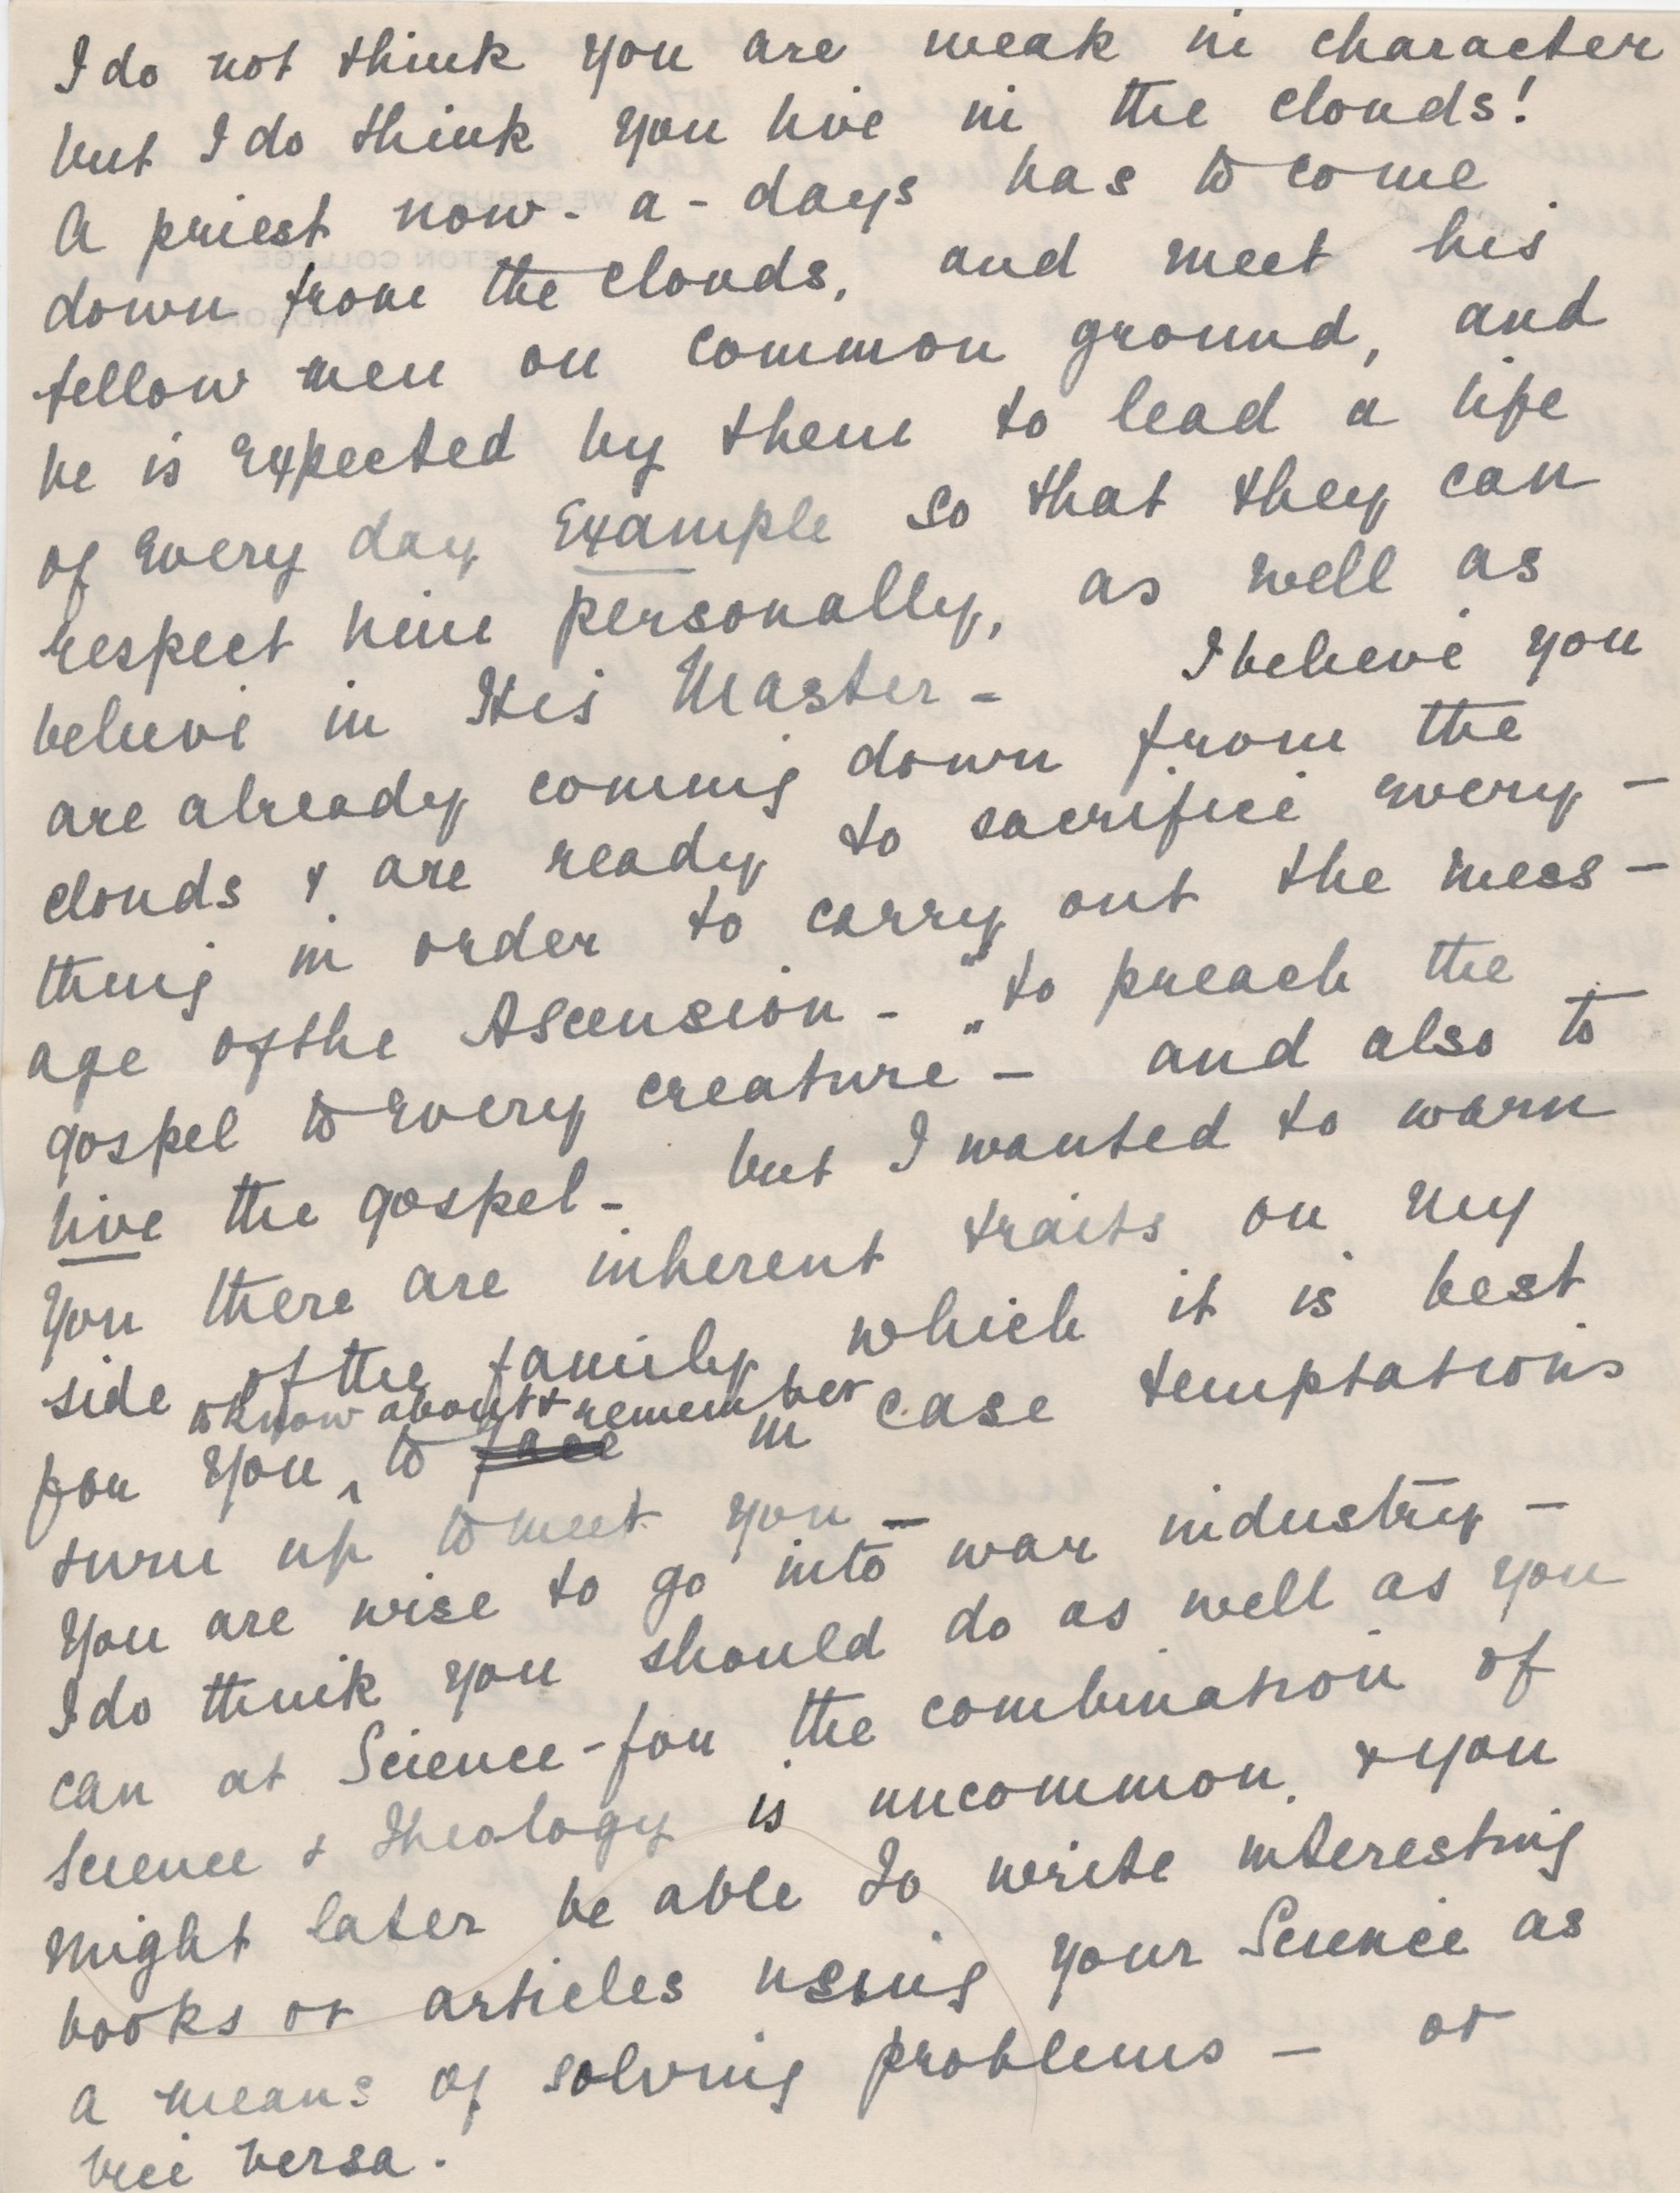 I do not think you are weak in character
but I do think you live in the clouds!
A priest now-a-days has to come
down from the clouds, and meet his
fellow men on common ground, and
he is expected by them to lead a life
of every day example so that they can
respect him personally, as well as
believe in His Master - I believe you
are already coming down from the
clouds & are ready to sacrifice every-
thing in order to carry out the mess-
age of the Ascension - "to preach the
gospel to every creature" - and also to
live the gospel - but I wanted to warn
you there are inherent traits on my
side of the family, which it is best
to know about & remember
for you, to face in case temptations
turn up to meet you -
You are wise to go into war industry -
I do think you should do as well as you
can at Science - for the combination of
Science & Theology is uncommon. & you
might later be able to write interesting
books or articles using your Science as
a means of solving problems - or
vice versa.